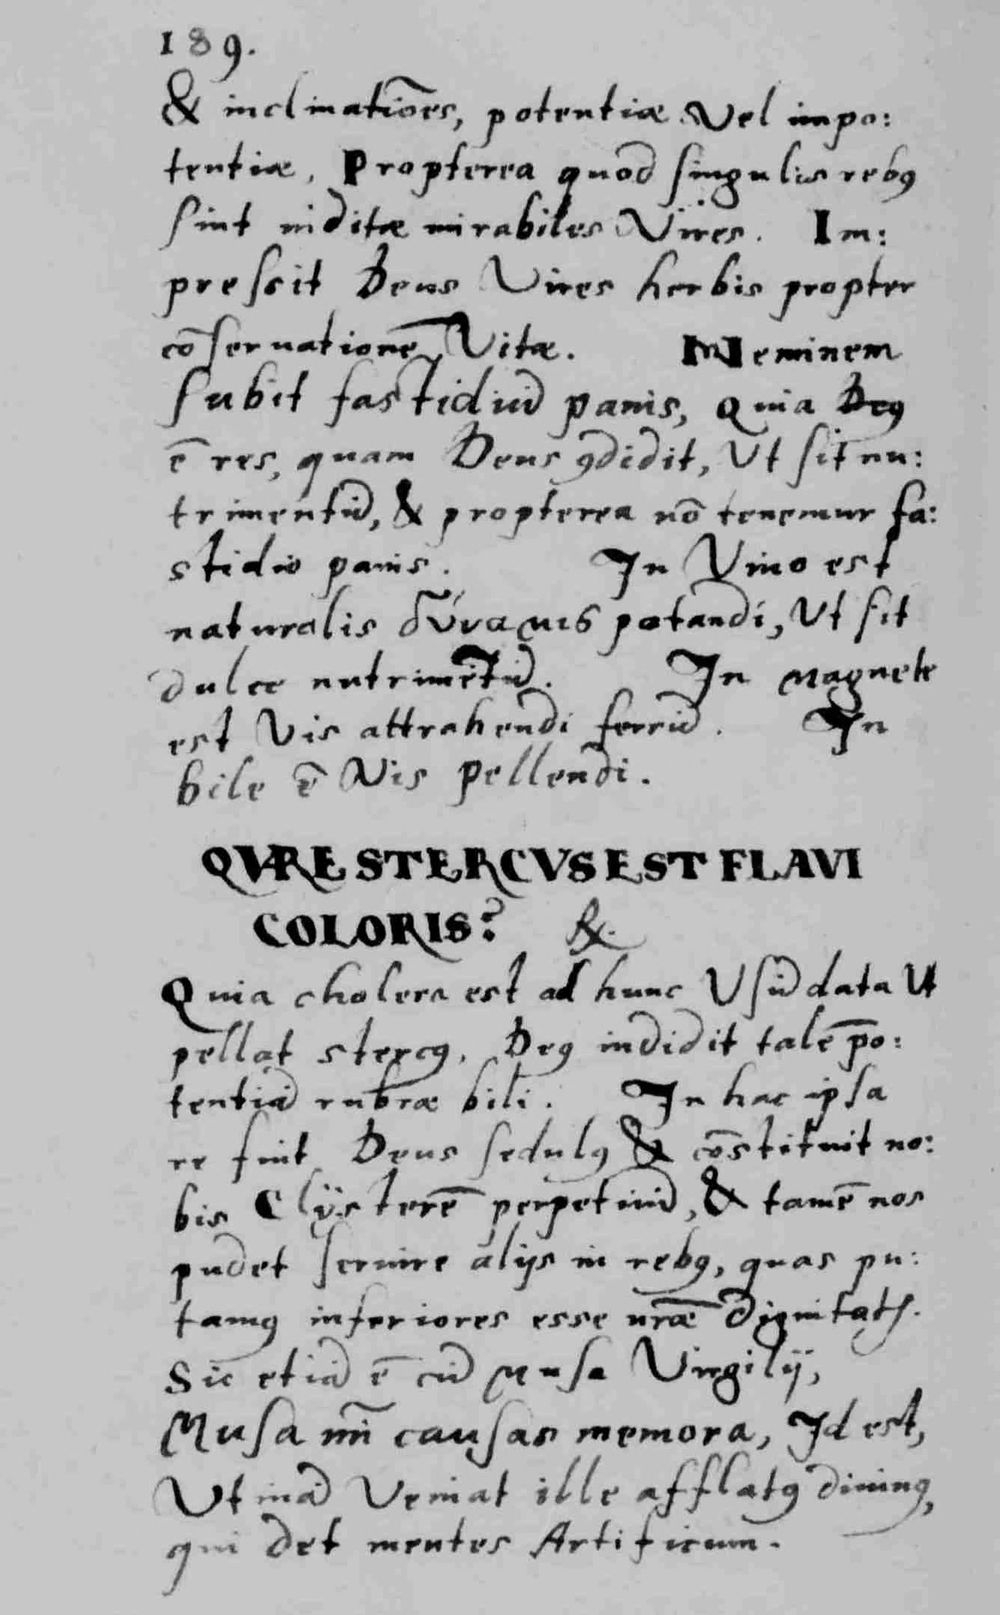 189.
& inclinatiōes, potentiæ Vel impo:
tentiæ, Propterea quod singulis rebꝰ
sint inditæ mirabiles Vires. Im:
pressit Deus Vires herbis propter
cōseruationē Vitæ. Neminem
subit fastidiū panis, Quia Deꝰ
ē res, quam Deus ꝯdidit, Ut sit nu:
trimentū, & propterea nō tenemur fa:
stidio panis. In Vino est
naturalis δύναμις potandi, Ut sit
dulce nutrimētū. In Magnete
est Vis attrahendi ferrū. In
bile ē Vis pellendi.
QVRE STERCVS EST FLAVI
COLORIS? ℞.
Quia cholera est ad hunc Usū data Ut
pellat stercꝰ, Deꝰ indidit talē po:
tentiā rubræ bili. In hac ipsa
re fuit Deus sedulꝰ & cōstituit no:
bis Clÿsterē perpetuū, & tamē nos
pudet seruire alijs in rebꝰ, quas pu:
tamꝰ inferiores esse nr̄æ dignitatis.
Sic etiā ē cū Musa Virgilij,
Musa mī causas memora, Id est,
Utinā Veniat ille afflatꝰ diuinꝰ,
qui det mentes Artificum.